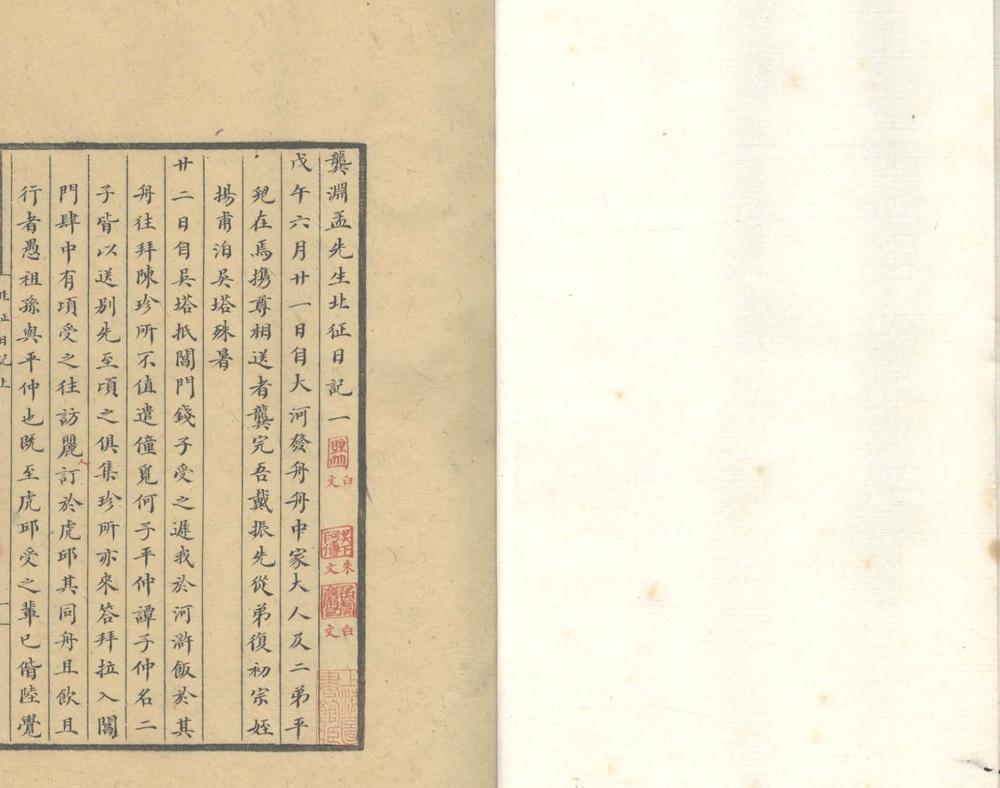 龔淵孟先生北征日記一 白文 朱文 白文
戊午六月廿一日自大河發舟舟中家大人及二弟平
兒在焉攜尊相送者龔完吾戴振先從弟復初宗姪
揚甫泊吳塔殊暑
廿二日自吳塔抵閶門錢子受之遲我於河滸飯於其
舟往拜陳珍所不值遣僮覓何子平仲譚子仲名二
子皆以送別先至頃之俱集珍所亦來答拜拉入閶
門肆中有頃受之往訪麗人訂於虎邱其同舟且飲且
行者愚祖孫與平仲也既至虎邱受之輩已偕陸覺
北征日記上